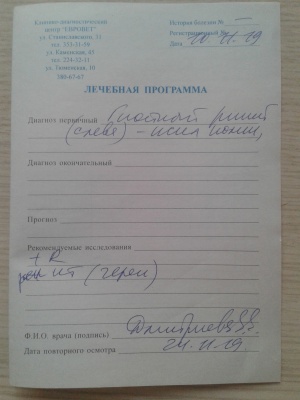 Клинико-диагностический
центр "ЕВРОВЕТ"
ул. Станиславского, 21
тел. 353-31-59
ул. Каменская, 45
тел. 224-32-11
ул. Тюменская, 10
380-67-67
История болезни № —
Регистрационный №
Дата 20.11.19
ЛЕЧЕБНАЯ ПРОГРАММА
Диагноз первичный Гнойный ринит
(слева) -
Диагноз окончательный
Прогноз
Рекомендуемые исследования
+ R
Ф.И.О. врача (подпись) Дмитриева
Дата повторного осмотра 24.11.19.